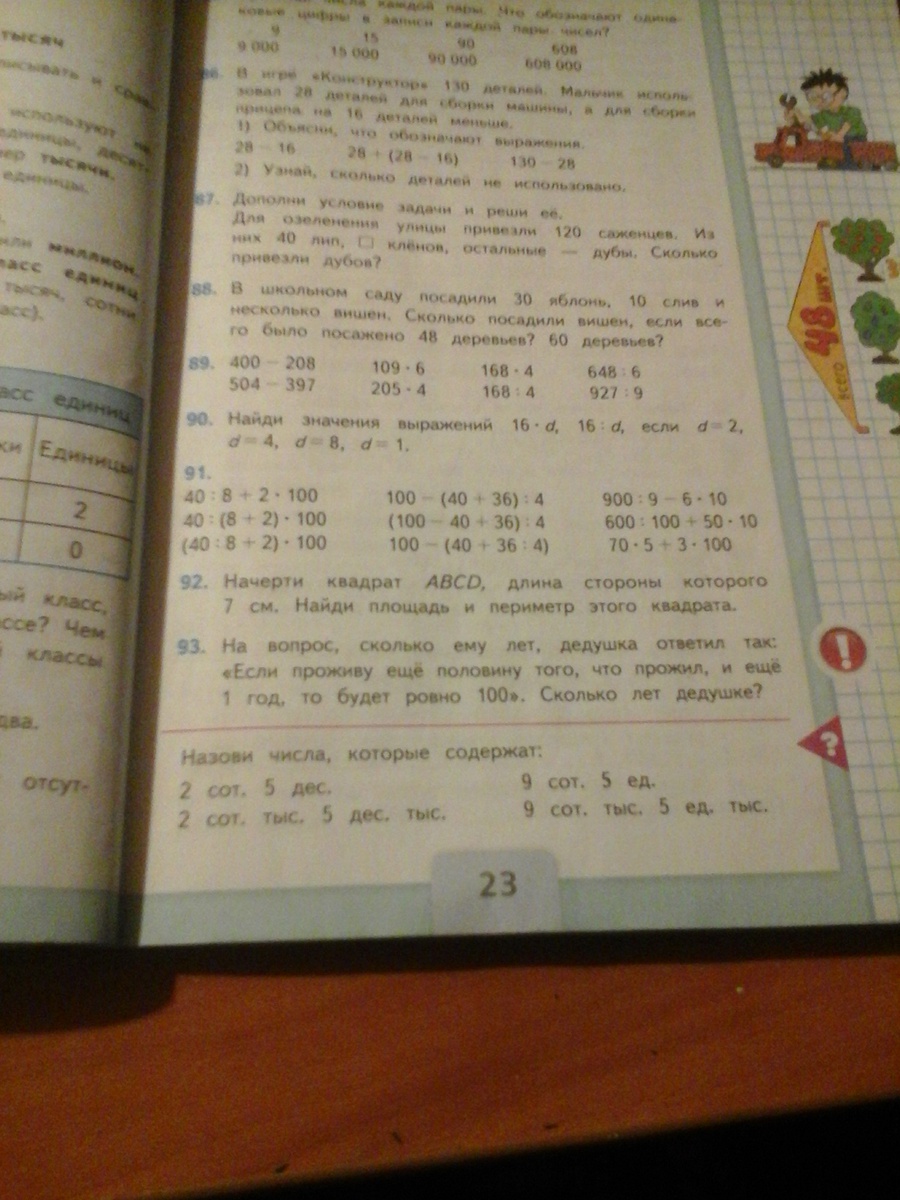 тысяч
используют не
единицы, десят-
тысячи.
единицы.
или миллион.
класс единиц
тысяч, сотни
асс).
асс единиц
ки Единицы
2
0
ый класс,
ссе? Чем
классы
два.
отсут-
числа каждой пары. Что обозначают одина-
ковые цифры в записи каждой пары чисел?
9 15 90 608
9 000 15 000 90 000 608 000
86. В игре «Конструктор» 130 деталей. Мальчик исполь-
зовал 28 деталей для сборки машины, а для сборки
прицепа на 16 деталей меньше.
1) Объясни, что обозначают выражения.
28 − 16 28 + (28 − 16) 130 − 28
2) Узнай, сколько деталей не использовано.
87. Дополни условие задачи и реши её.
Для озеленения улицы привезли 120 саженцев. Из
них 40 лип, □ клёнов, остальные — дубы. Сколько
привезли дубов?
88. В школьном саду посадили 30 яблонь, 10 слив и
несколько вишен. Сколько посадили вишен, если все-
го было посажено 48 деревьев? 60 деревьев?
89. 400 − 208 109 · 6 168 · 4 648 : 6
504 − 397 205 · 4 168 : 4 927 : 9
90. Найди значения выражений 16 · d, 16 : d, если d = 2,
d = 4, d = 8, d = 1.
91.
40 : 8 + 2 · 100 100 − (40 + 36) : 4 900 : 9 − 6 · 10
40 : (8 + 2) · 100 (100 − 40 + 36) : 4 600 : 100 + 50 · 10
(40 : 8 + 2) · 100 100 − (40 + 36 : 4) 70 · 5 + 3 · 100
92. Начерти квадрат ABCD, длина стороны которого
7 см. Найди площадь и периметр этого квадрата.
93. На вопрос, сколько ему лет, дедушка ответил так:
«Если проживу ещё половину того, что прожил, и ещё
1 год, то будет ровно 100». Сколько лет дедушке?
Назови числа, которые содержат:
2 сот. 5 дес. 9 сот. 5 ед.
2 сот. тыс. 5 дес. тыс. 9 сот. тыс. 5 ед. тыс.
23
48 шт.
всего
!
?